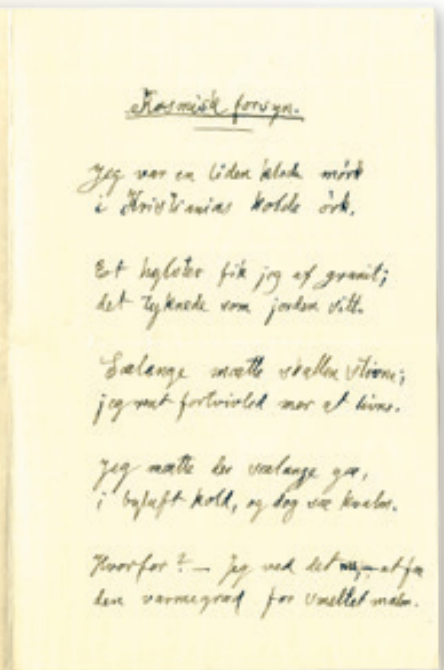 Kosmisk forsyn.
Jeg var en liden klode mørk
i Kristianias kolde ørk.
Et hylster fik jeg af granit;
det tyknede som jorden vitt.
Saalange maatte skallen stivne;
jeg rent fortvivled mer at livne.
Jeg maatte der saalange gaa,
i byluft kold, og dog saa kvalm.
Hvorfor? — Jeg ved det at faa
den varmegrad for smeltet malm.